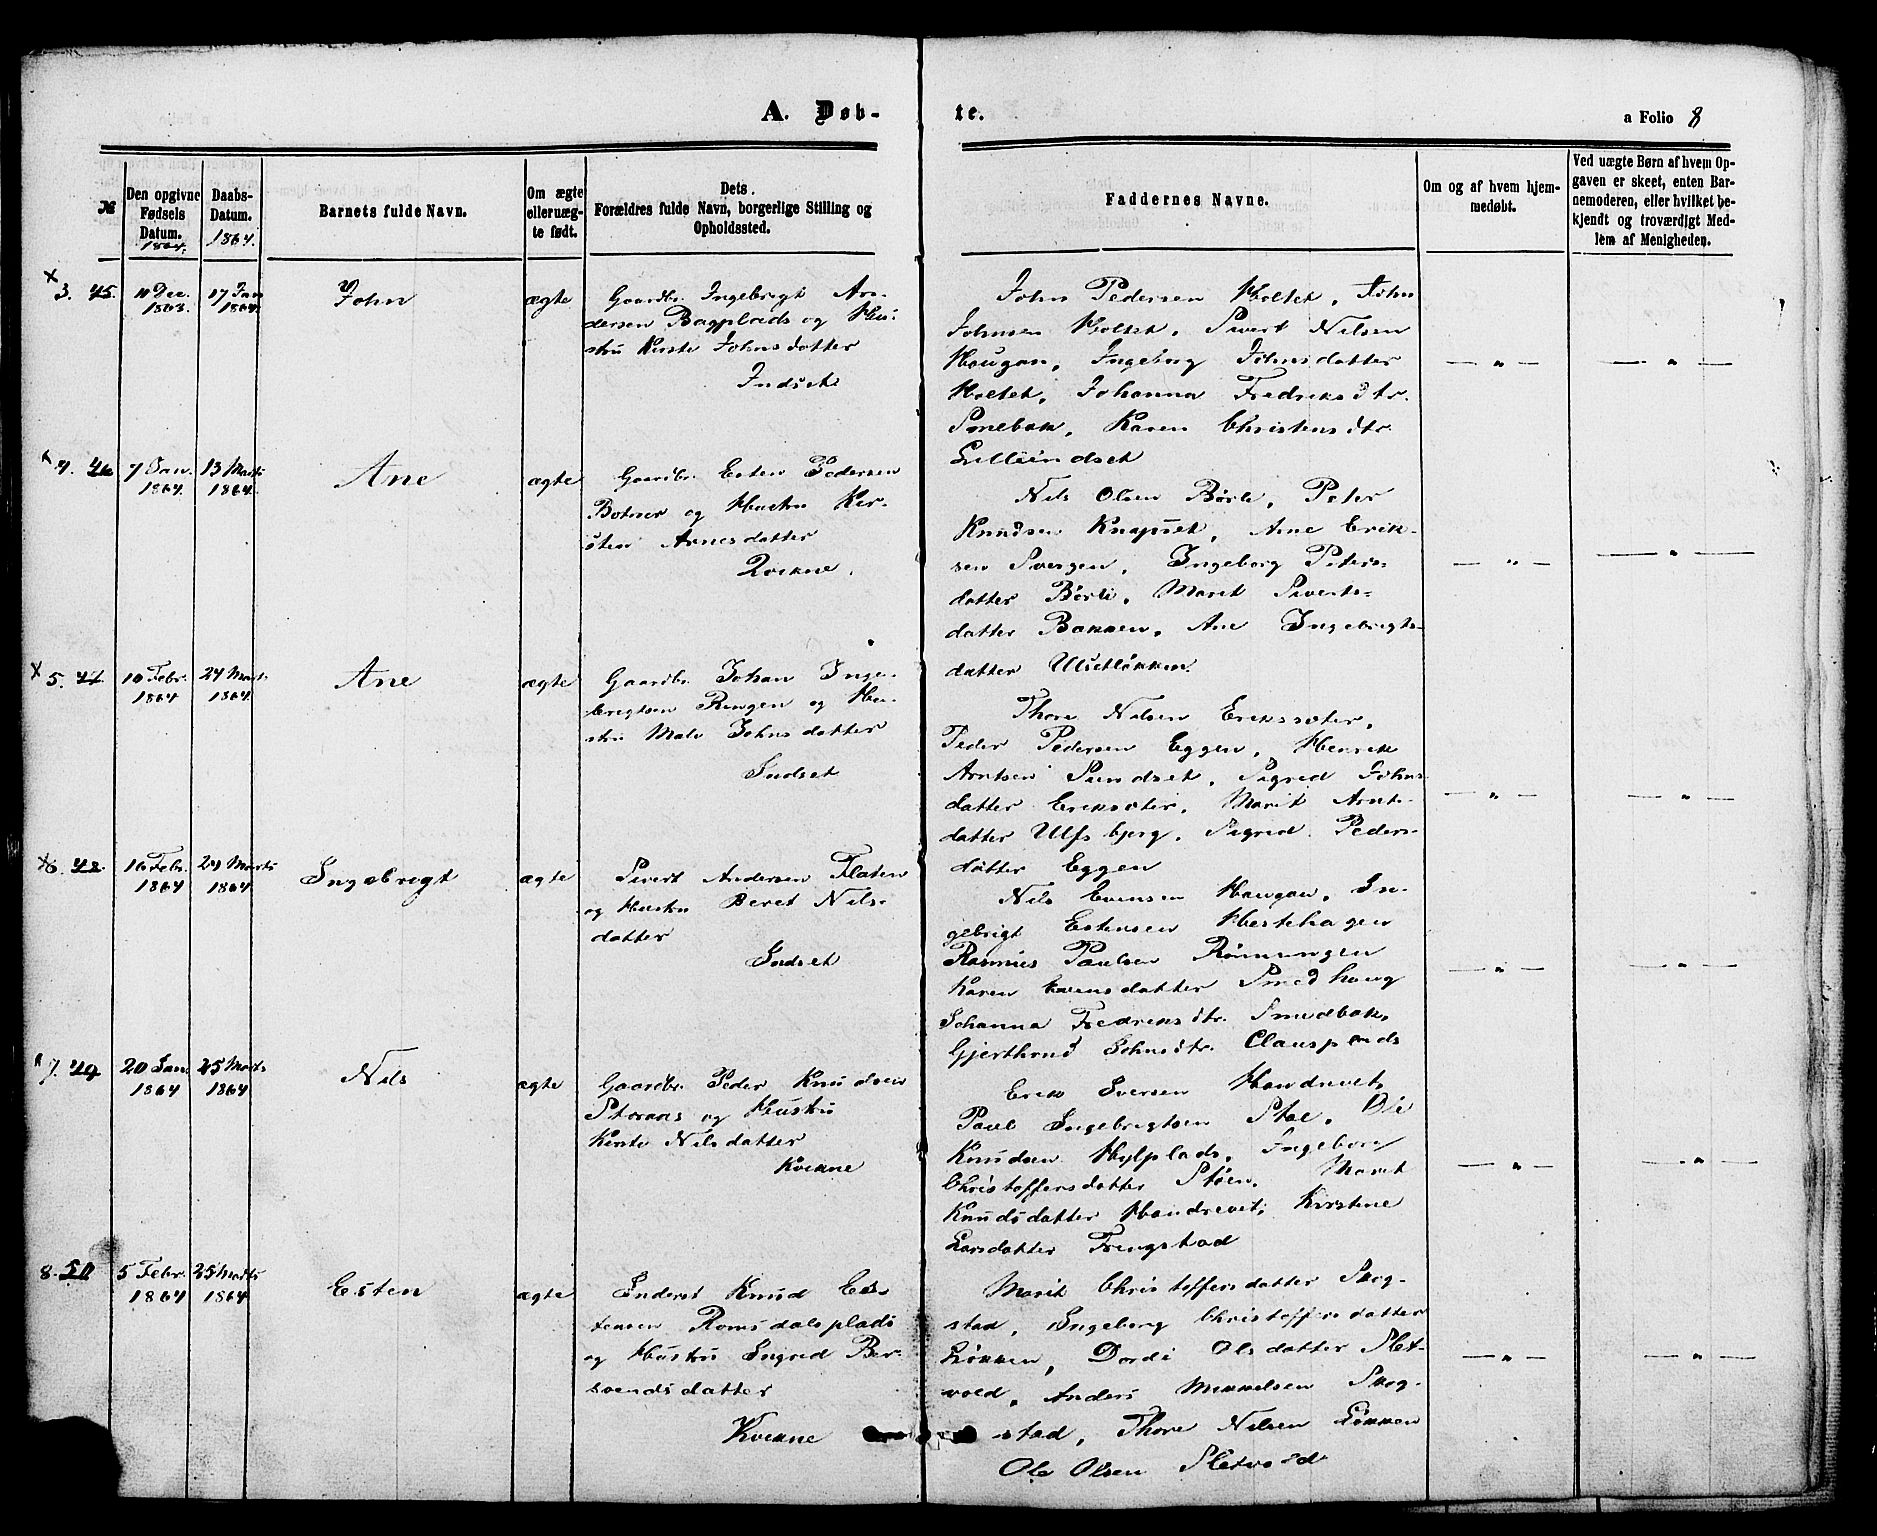 A. Døb-
te.
a Folio 8
№
Den opgivne
Fødsels
Datum.
1864.
Daabs-
Datum.
1864.
Barnets fulde Navn.
Om ægte
elleruæg-
te født.
Dets
Forældres fulde Navn, borgerlige Stilling og
Opholdssted.
Faddernes Navne.
Om og af hvem hjem-
medøbt.
Ved uægte Børn af hvem Op-
gaven er skeet, enten Bar-
nemoderen, eller hvilket be-
kjendt og troværdigt Med-
lem af Menigheden.
× 3. 45.
11 Dec.
1863.
17 Jan
1864.
John
ægte
Gaardbr. Ingebrigt An-
dersen Bagplads og Hu-
stru Kirste Johnsdatter
Indset
John Pedersen Holtet, John
Johnsen Holtet, Sivert Nilsen
Haugan, Ingeborg Johnsdatter
Holtet, Johanna Fredriksdtr.
Smebak, Karen Christensdtr.
Lilleindset
— " —
— " —
× 4. 46
7 Jan.
1864.
13 Marts
1864.
Ane
ægte
Gaardbr. Esten Pedersen
Botner og Hustru Kir-
sten Arnesdatter
Qvikne.
Nils Olsen Børli, Peter
Knudsen Knapset, Arne Erik-
sen Svergen, Ingeborg Peters-
datter Børli, Marit Siverts-
datter Bakken, Ane Ingebrigts-
datter Ulsetløkken.
— " —
— " —
× 5. 47
10 Febr.
1864
24 Marts
1864.
Ane
ægte
Gaardbr. Johan Inge-
brigtsen Ringen og Hu-
stru Mali Johnsdatter
Indset
Thore Nilsen Erikssæter,
Peder Pedersen Eggen, Henrik
Arntsen Sundset, Sigrid Johns-
datter Eriksæter, Marit Arnts-
datter Ulfsbjerg, Sigrid Peders-
datter Eggen
— " —
— " —
× 6. 48
16 Febr.
1864
24 Marts
1864
Ingebrigt
ægte
Sivert Andersen Flaten
og Hustru Beret Nils-
datter
Indset
Nils Evensen Haugan, In-
gebrigt Estensen Hestehagen
Rasmus Paulsen Rønningen
Karen Evensdatter Smedhaug
Johanna Fredriksdtr. Smedbak,
Gjerthrud Johnsdtr. Clausplads
— " —
— " —
× 7. 49
20 Jan.
1864
25 Marts
1864
Nils
ægte
Gaardbr. Peder Knudsen
Storaas og Hustru
Kirsti Nilsdatter
Kvikne
Erik Iversen Haudrevet,
Paul Ingebrigtsen Stoe, Ole
Knudsen Hylplads, Ingeborg
Christoffersdatter Støen, Marit
Knudsdatter Haudrevet, Kirstine
Larsdatter Frengstad
— " —
— " —
8. 50
5 Febr.
1864
25 Marts
1864
Esten
ægte
Inderst Knud Es-
tensen Romsdalsplads
og Hustru Ingrid Ber-
svendsdatter
Kvikne
Marit Christoffersdatter Skog-
stad, Ingeborg Christoffersdatter
Løkken, Dordi Olsdatter Slet-
vold, Anders Mikkelsen Skog-
stad, Thore Nilsen Løkken
Ole Olsen Sletvold
— " —
— " —